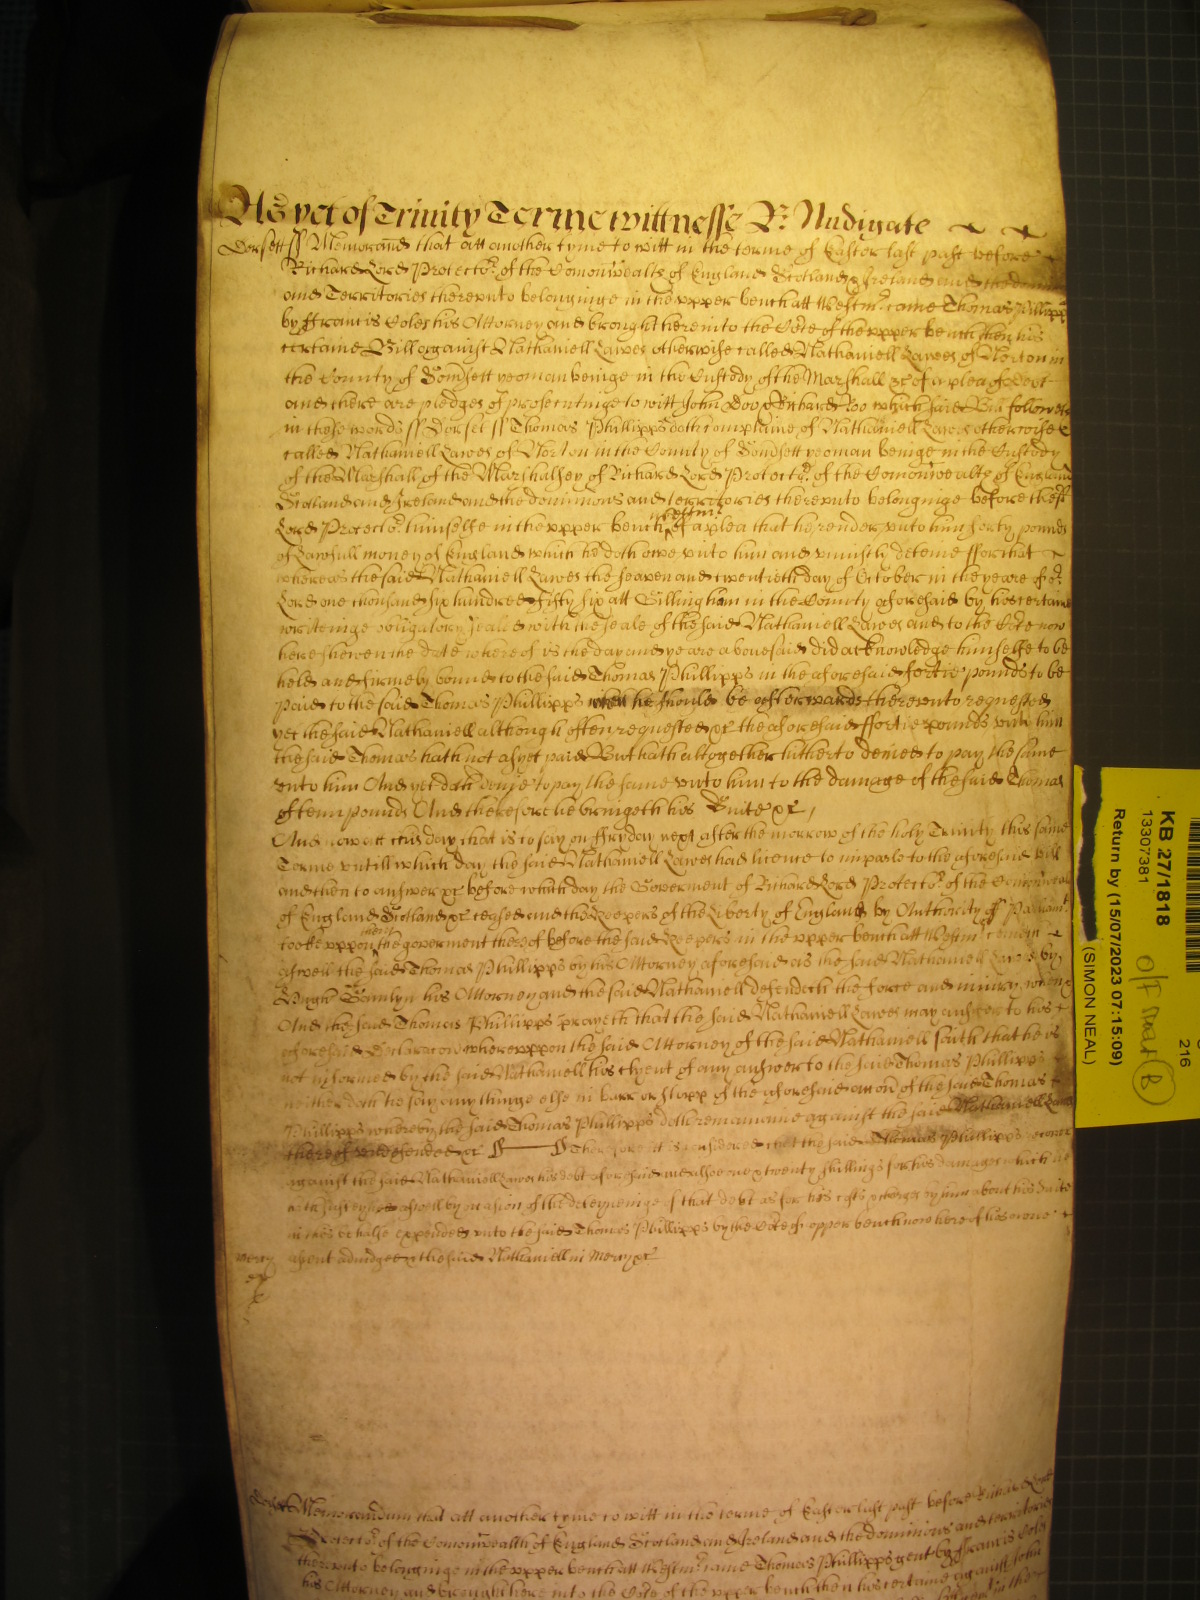 As yet of Trinity Terme wittnesse R: Nudigate
Dorsett ss Memorand that att another tyme to witt in the terme of Easter last past before
Richard Lord Protector of the Comonwealth of England Scotland & Ireland and the
and Territories thereunto belonginge in the upper bench att Westmr came Thomas Phillipps
by Francis Coles his Attorney and brought here into the Cote of the upper bench then his
certaine Bill against Nathaniell Lawes otherwise called Nathaniell Lawes of Norton in
the County of Somsett yeoman beinge in the Custody of the Marshall &c of a plea of debt
and there are pledges of prosecutinge to witt John Doo & Richard Roo which said Bill followes
in these words ss Dorset ss Thomas Phillipps doth complaine of Nathaniell Lawes otherwise
called Nathaniell Lawes of Norton in the County of Somsett yeoman beinge in the Custody
of the Marshall of the Marshalsey of Richard Lord Protector of the Comonwealth of England
Scotland and Ireland and the dominions and territories thereunto belonginge before the
Westmr
Lord Protector himselfe in the upper bench of a plea that he render unto him forty pounds
of Lawfull money of England which he doth owe unto him and uniustly deteine ffor that
whereas the said Nathaniell Lawes the seaven and twentieth day of October in the yeare of or
Lord one thousand six hundred fifty six att Gillingham in the County aforesaid by his certaine
writeinge obligatory seald with the seale of the said Nathaniell Lawes and to the Cote now
here shewen the date whereof is the day and yeare abovesaid did acknowledge himselfe to be
held and firmely bound to the said Thomas Phillipps in the aforesaid fortie pounds to be
paid to the said Thomas Phillipps when he should be afterwards thereunto requested
yet the said Nathaniell although often requested &c the aforesaid ffortie pounds unto him
the said Thomas hath not as yet paid But hath altogether hitherto denied to pay the same
unto him And yet doth denie to pay the same unto him to the damage of the said Thomas
of tenn pounds And therefore he bringeth his Suite &c
And now att this day that is to say on ffryday next after the morrow of the holy Trinity this same
Terme untill which day the said Nathaniell Lawes had licence to imparle to the aforesaid Bill
and then to answer &c before which day the Goverment of Richard Lord Protector of the Comonwealth
of England Scotland &c ceased and the Keepers of the Liberty of England by Authority of Parliamt
them
tooke uppon the goverment thereof before the said Keepers in the upper bench att Westmr cometh
aswell the said Thomas Phillipps by his Attorney aforesaid as the said Nathaniell Lawes by
Hugh Hamlyn his Attorney and the said Nathaniell defendeth the force and iniury when &c
And the said Thomas Phillipps prayeth that the said Nathaniell Lawes may answer to his
aforesaid Declaracon whereuppon the said Attorney of the said Nathaniell saith that he is
not informed by the said Nathaniell his clyent of any answer to the said Thomas Phillipps
neither doth he say any thinge else in barr or stopp of the aforesaid accon of the said Thomas
Phillipps whereby the said Thomas Phillipps doth remaine against the said Nathaniell Lawes
thereof undefended &c Therefore it is considered that the said Thomas Phillipps recover
against the said Nathaniell Lawes his debt aforesaid and alsoe twenty shillings for his damages which he
hath susteyned aswell by reason of the deteyneinge of that debt as for his costs & charges by him about his suite
in this behalfe expended unto the said Thomas Phillipps by the Cote of upper bench now here of his owne
mercy
assent adiudged & the said Nathaniell in Mercy &c
Memorandum that att another tyme to witt in the terme of Easter last past before Richard Lord
Protector of the Comonwealth of England Scotland and Ireland and the dominions and territories
thereunto belonginge in the upper bench att Westmr came Thomas Phillipps gent by Francis Coles
his Attorney and brought here into the Cote of the upper bench then his certaine against John
KB 27/1818
13307381
Return by (15/07/2023 07:15:09)
(SIMON NEAL)
216